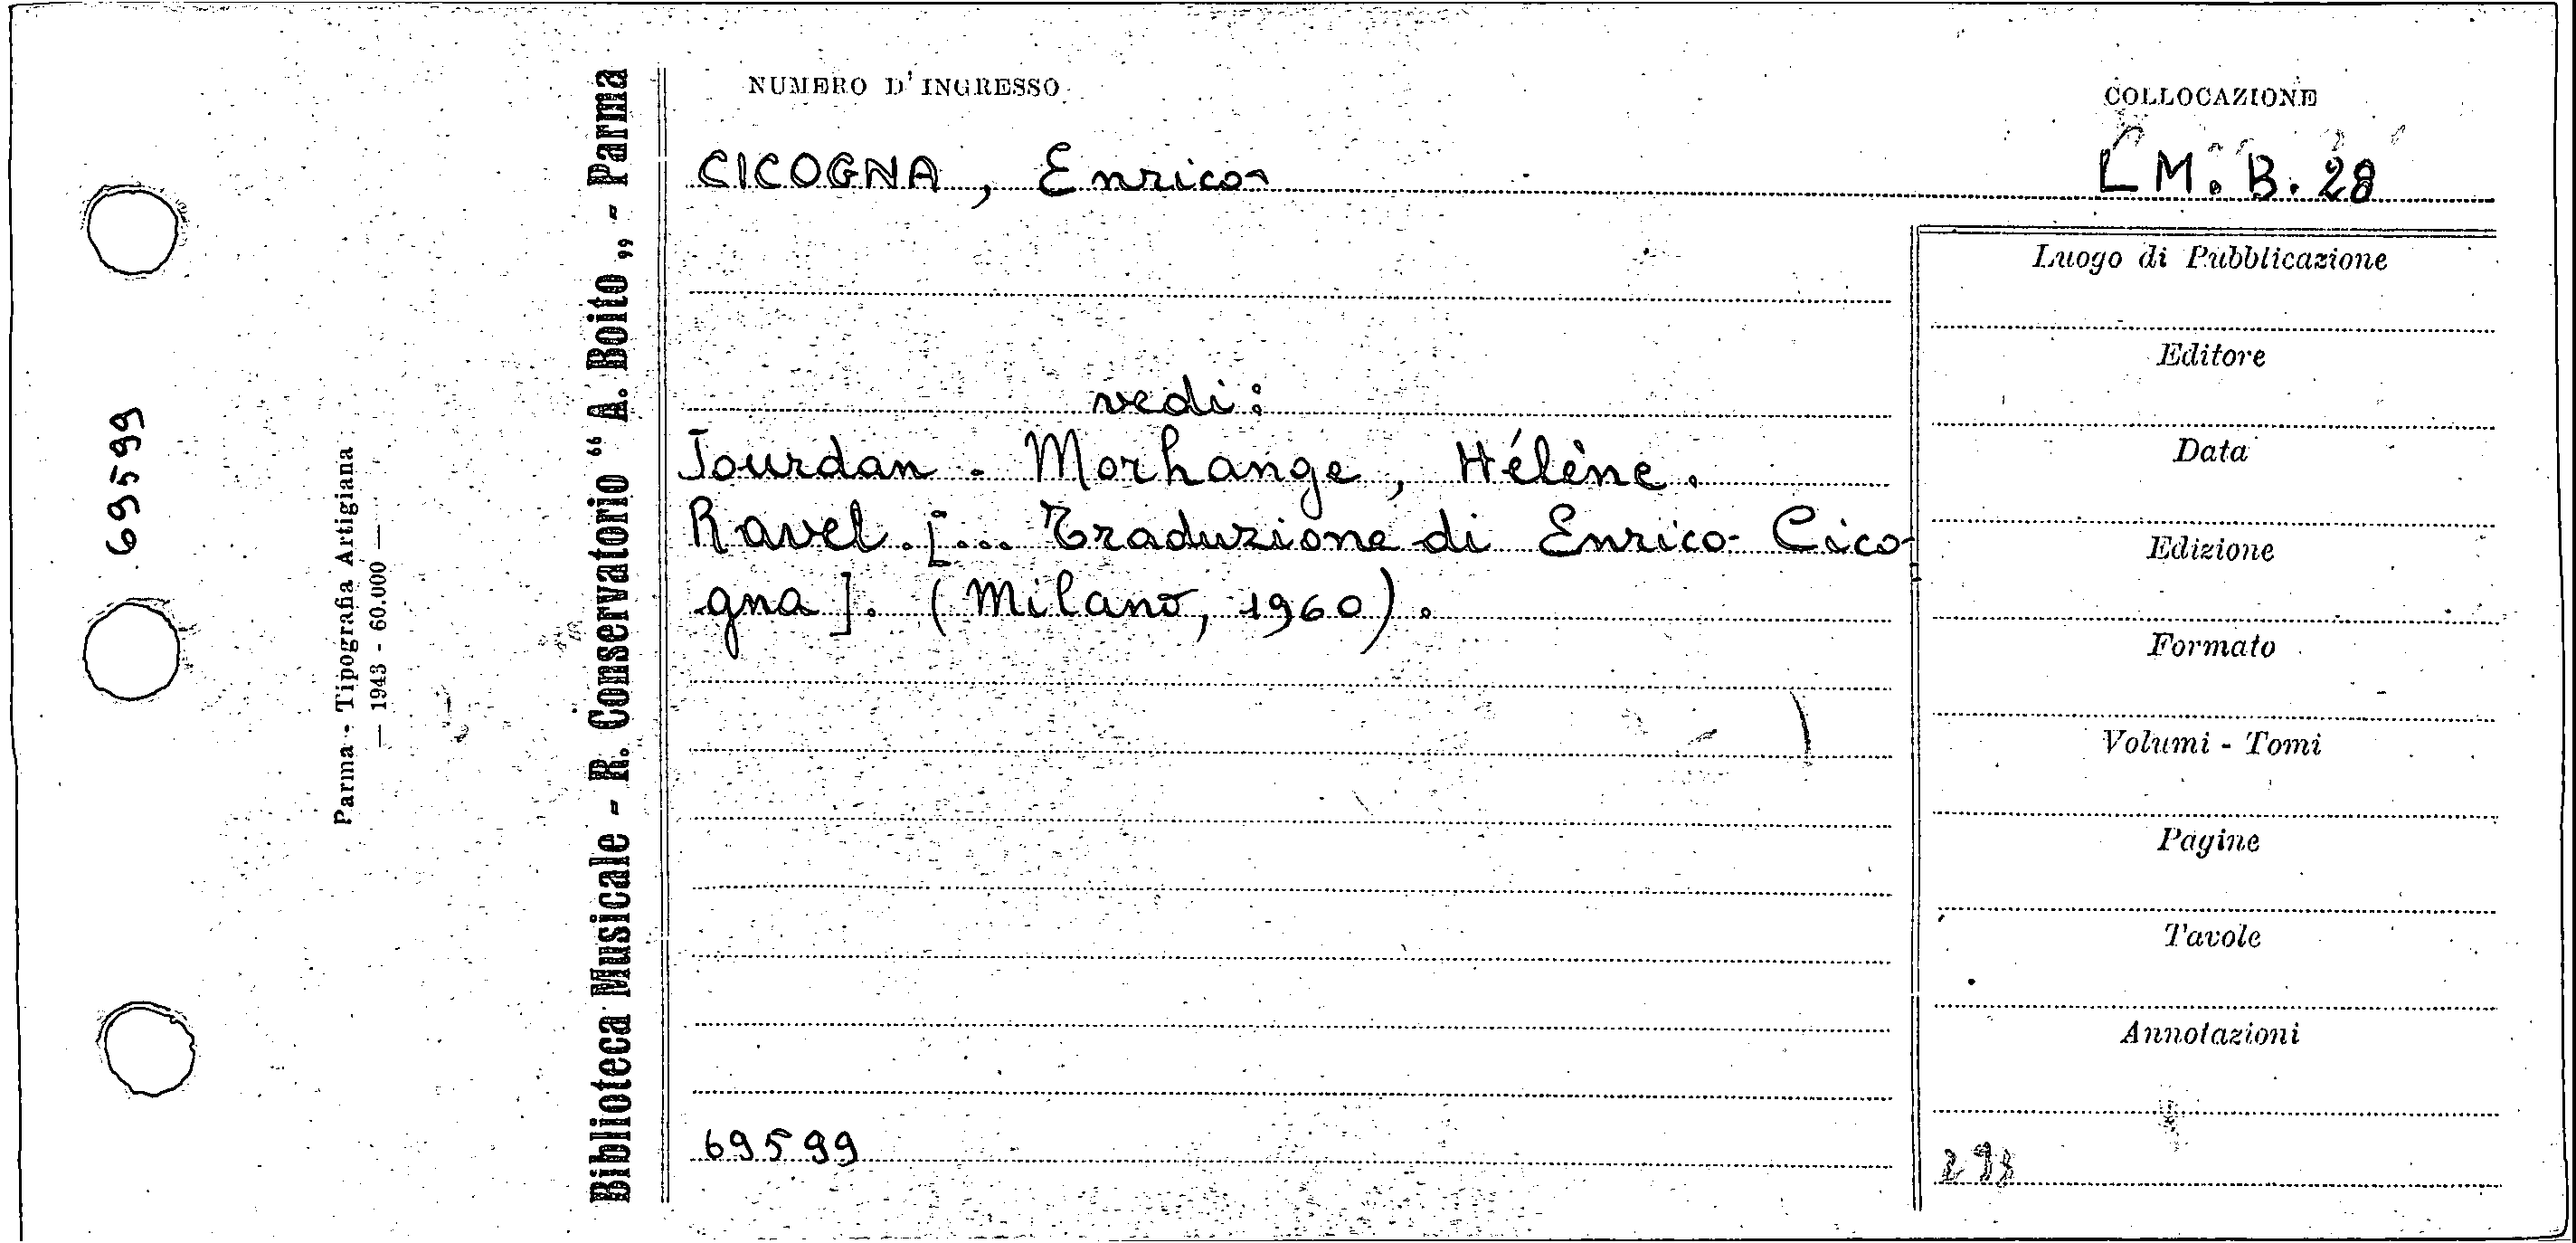 69599
Parma - Tipografia Artigiana
— 1943 - 60.000 —
Biblioteca Musicale - R. Conservatorio “ A. Boito „ - Parma
NUMERO D' INGRESSO
COLLOCAZIONE
CICOGNA, Enrico
LM. B. 28
vedi:
Jourdan - Morhange, Hélène.
Ravel. [... Traduzione di Enrico Cico-
gna]. (Milano, 1960).
69599
Luogo di Pubblicazione
Editore
Data
Edizione
Formato
Volumi - Tomi
Pagine
Tavole
Annotazioni